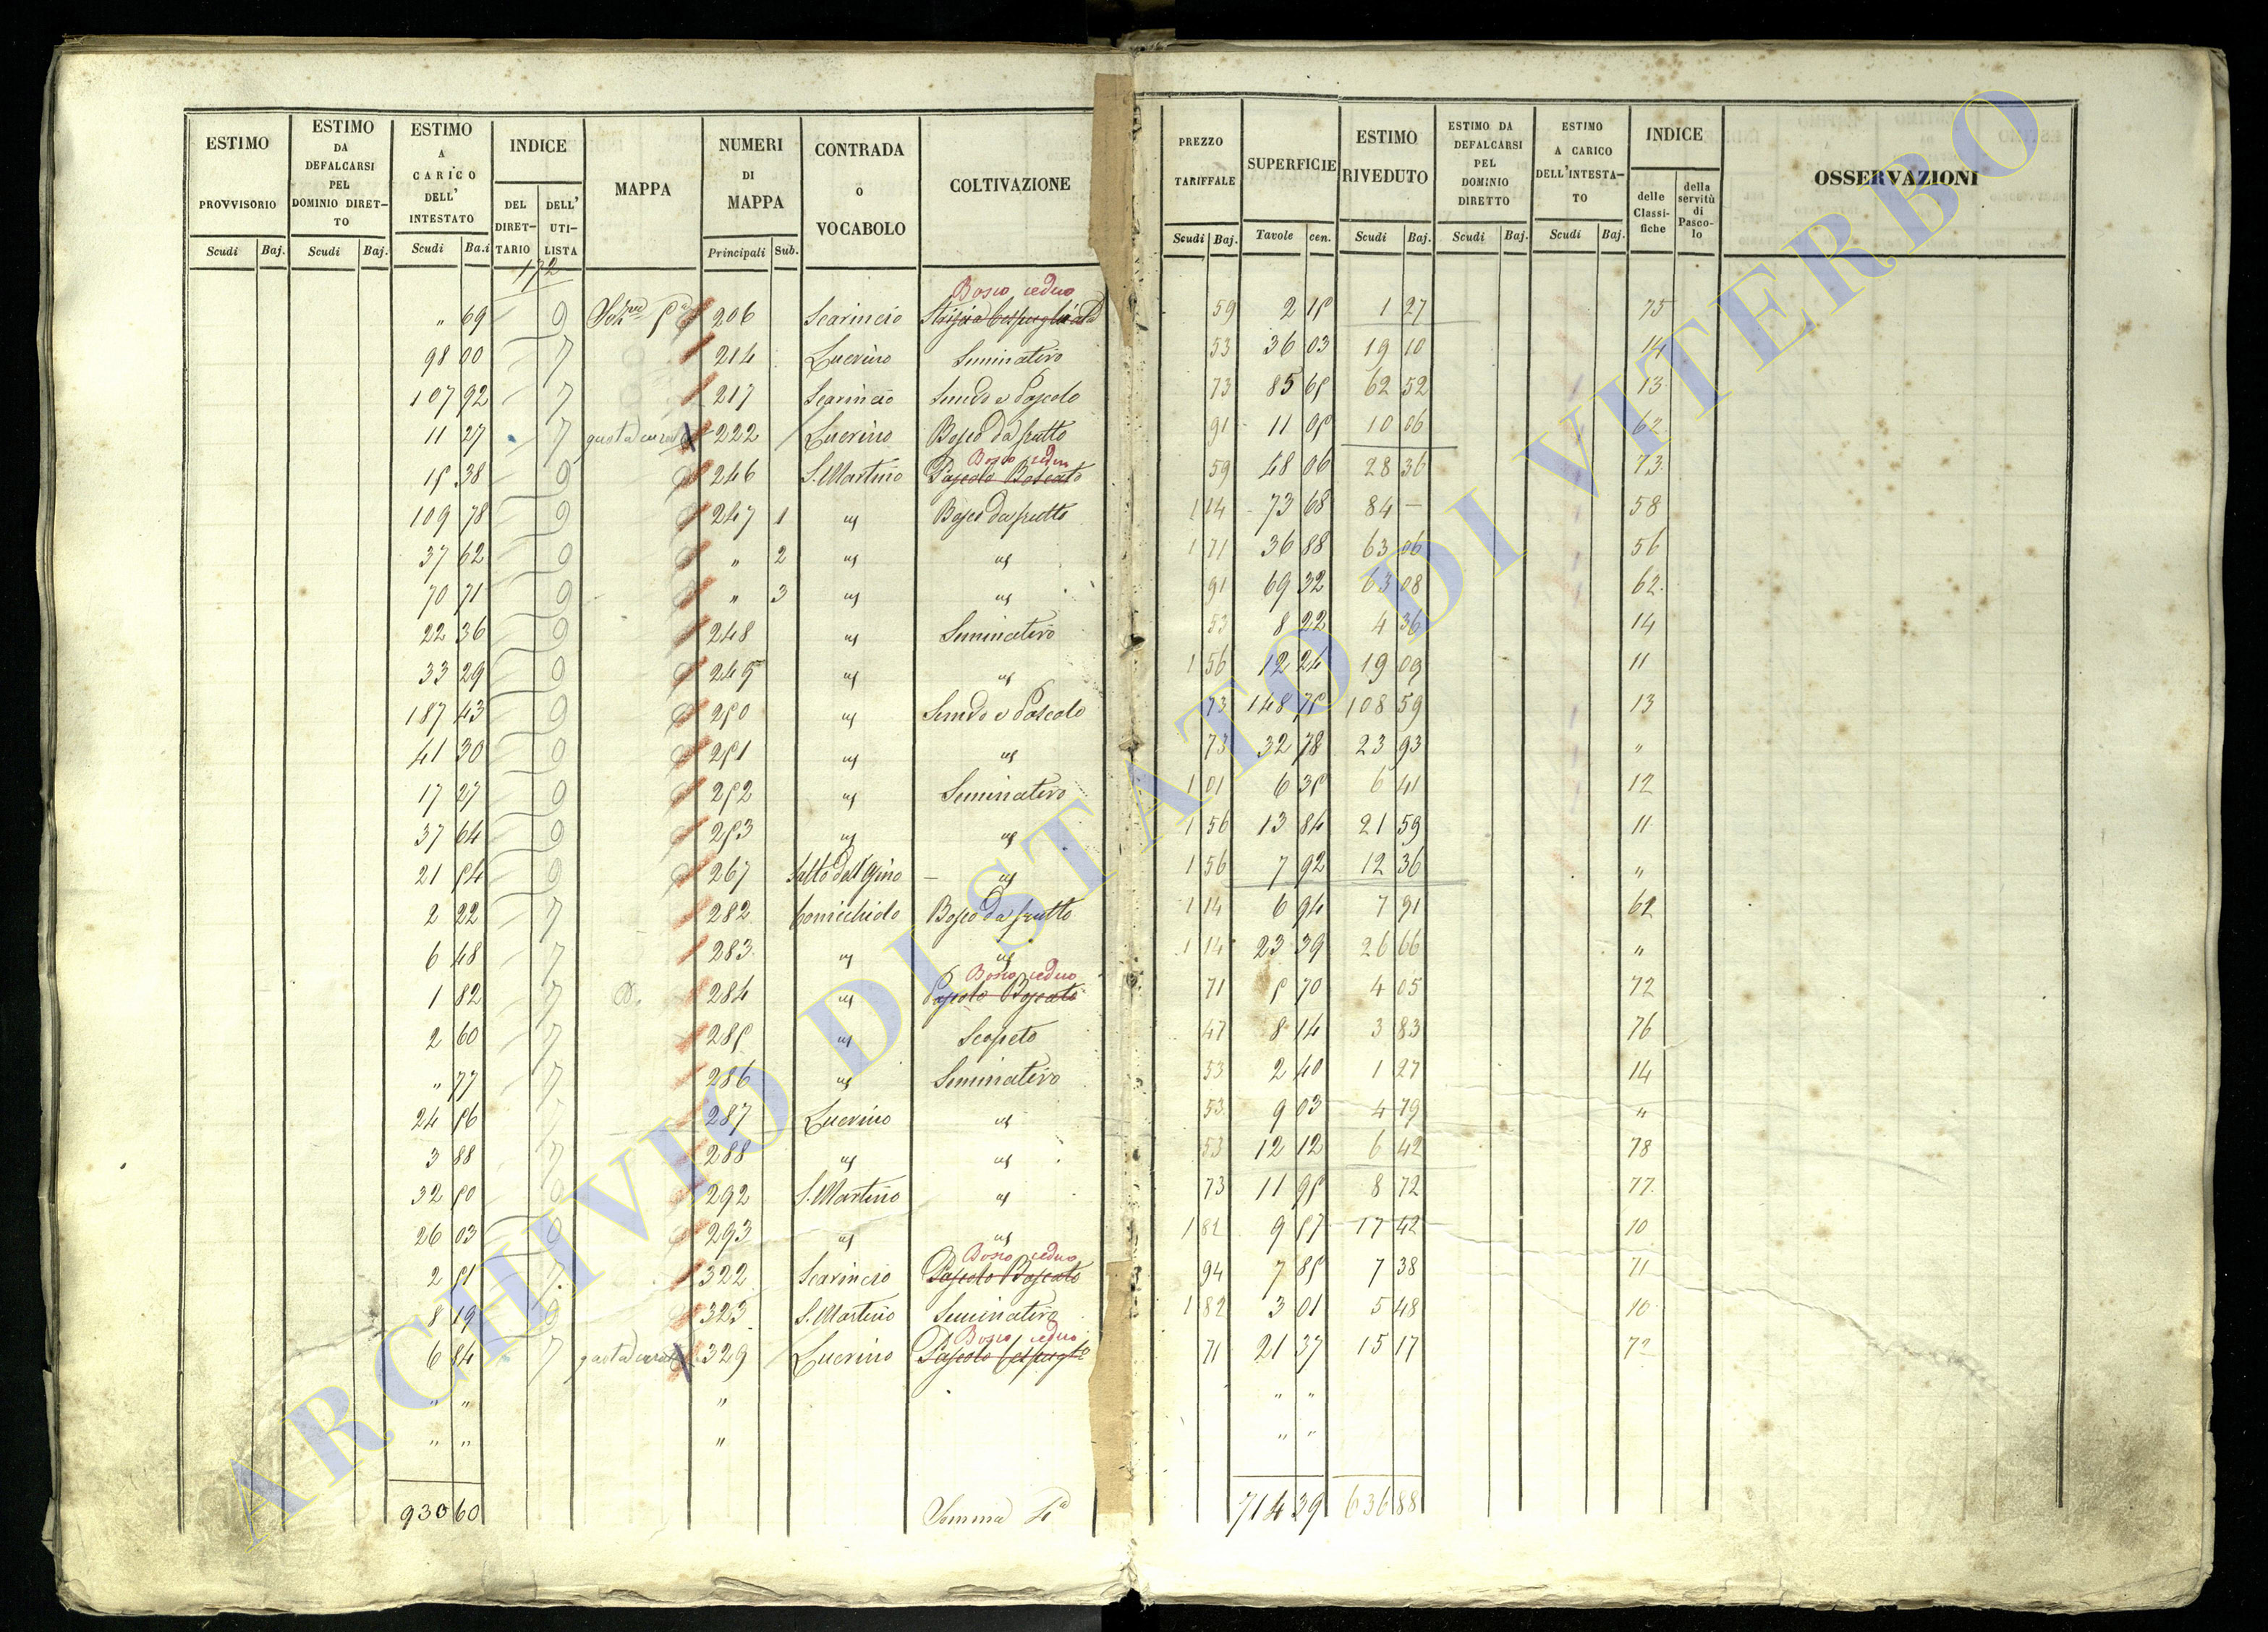 ESTIMO PROVVISORIO Scudi Baj. ESTIMO DA DEFALCARSI PEL DOMINIO DIRETTO Scudi Baj. ESTIMO A CARICO DELL' INTESTATO Scudi Ba.i INDICE DEL DIRETTARIO DELL' UTILISTA MAPPA NUMERI DI MAPPA Principali Sub. CONTRADA o VOCABOLO COLTIVAZIONE PREZZO TARIFFALE Scudi Baj. SUPERFICIE Tavole cen. ESTIMO RIVEDUTO Scudi Baj. ESTIMO DA DEFALCARSI PEL DOMINIO DIRETTO Scudi Baj. ESTIMO A CARICO DELL'INTESTATO Scudi Baj. INDICE delle Classifiche della servitù di Pascolo OSSERVAZIONI
172
Bosco ceduo
" 69 9 206 Scarincio 59 2 15 1 27 75
98 00 7 214 Lucrino Seminativo 53 36 03 19 10 14
107 92 7 217 Scarincio Semdo e Pascolo 73 85 65 62 52 13
11 27 7 222 Lucrino Bosco da frutto 91 11 05 10 06 62
Bosco ceduo
15 38 9 246 S. Martino Pascolo Boscato 59 48 06 28 36 73
109 78 9 247 1 " Bosco da frutto 1 14 73 68 84 – 58
37 62 9 " 2 " " 1 71 36 88 63 06 56
70 71 9 " 3 " " 91 69 32 63 08 62
22 36 9 248 " Seminativo 53 8 22 4 36 14
33 29 9 249 " " 1 56 12 24 19 09 11
187 43 9 250 " Semdo e Pascolo 73 148 75 108 59 13
41 30 9 251 " " 73 32 78 23 93 "
17 27 9 252 " Seminativo 1 01 6 35 6 41 12
37 64 9 253 " " 1 56 13 84 21 59 11
21 54 9 267 " 1 56 7 92 12 36 "
2 22 7 282 Bosco da frutto 1 14 6 94 7 91 62
6 48 7 283 " " 1 14 23 39 26 66 "
Bosco ceduo
1 82 7 284 " Pascolo Boscato 71 5 70 4 05 72
2 60 7 285 " Scopeto 47 8 14 3 83 76
" 77 7 286 " Seminativo 53 2 40 1 27 14
24 56 7 287 Lucrino " 53 9 03 4 79 "
3 88 7 288 " " 53 12 12 6 42 78
32 50 9 292 S. Martino " 73 11 95 8 72 77
26 03 9 293 " " 1 82 9 57 17 42 10
Bosco ceduo
2 51 7 322 Scarincio Pascolo Boscato 94 7 85 7 38 71
8 19 9 323 S. Martino Seminativo 1 82 3 01 5 48 10
Bosco ceduo
6 84 7 329 Lucrino Pascolo 71 21 37 15 17 72
" " " " "
" " " " "
930 60 Somma 714 39 636 88
ARCHIVIO DI STATO DI VITERBO